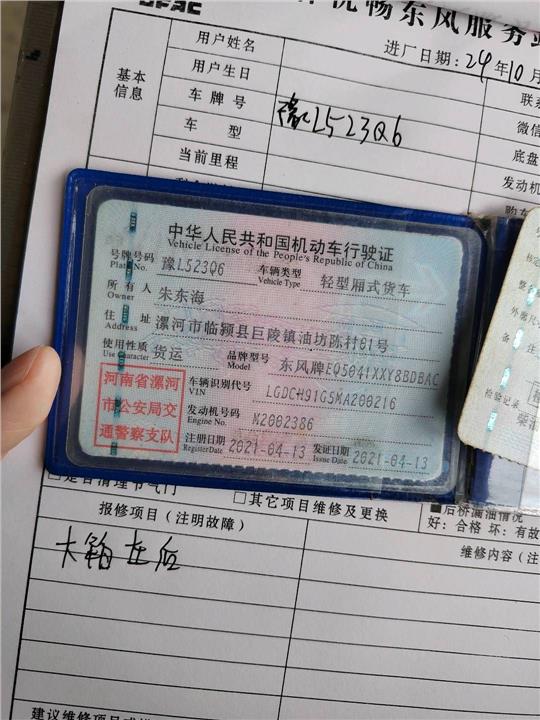 优畅东风服务站
进厂日期：24年10月
基本
信息
用户姓名
用户生日
车牌号 豫L523Q6
车型
当前里程
联系
微信
底盘
发动机
购车
中华人民共和国机动车行驶证
Vehicle License of the People's Republic of China
号牌号码 豫L523Q6 车辆类型 轻型厢式货车
Plate No. Vehicle Type
所有人 朱东海
Owner
住址 漯河市临颍县巨陵镇油坊陈村81号
Address
使用性质 货运 品牌型号 东风牌EQ5041XXY8BDBAC
Use Character Model
河南省漯河
市公安局交
通警察支队
车辆识别代号 LGDCH91G5MA200216
VIN
发动机号码 M2002386
Engine No.
注册日期 2021-04-13 发证日期 2021-04-13
Register Date Issue Date
检验记录
是否清理节气门
□其它项目维修及更换
■后桥漏油情况
好：合格 坏：有故
报修项目（注明故障）
维修内容（注
大轴左后